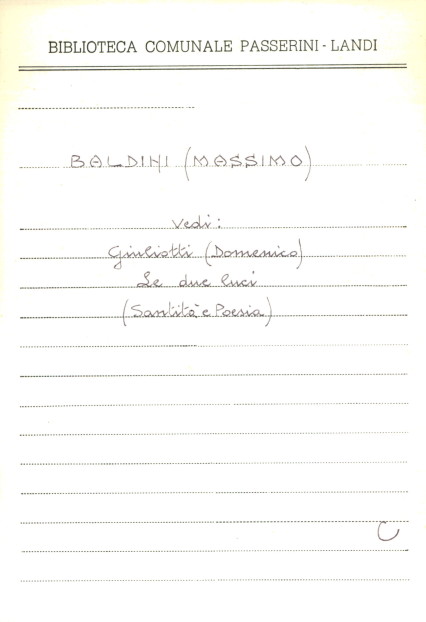 BIBLIOTECA COMUNALE PASSERINI - LANDI
BALDINI (MASSIMO)
Vedi:
Giuliotti (Domenico)
Le due luci
(Santità e Poesia)
C